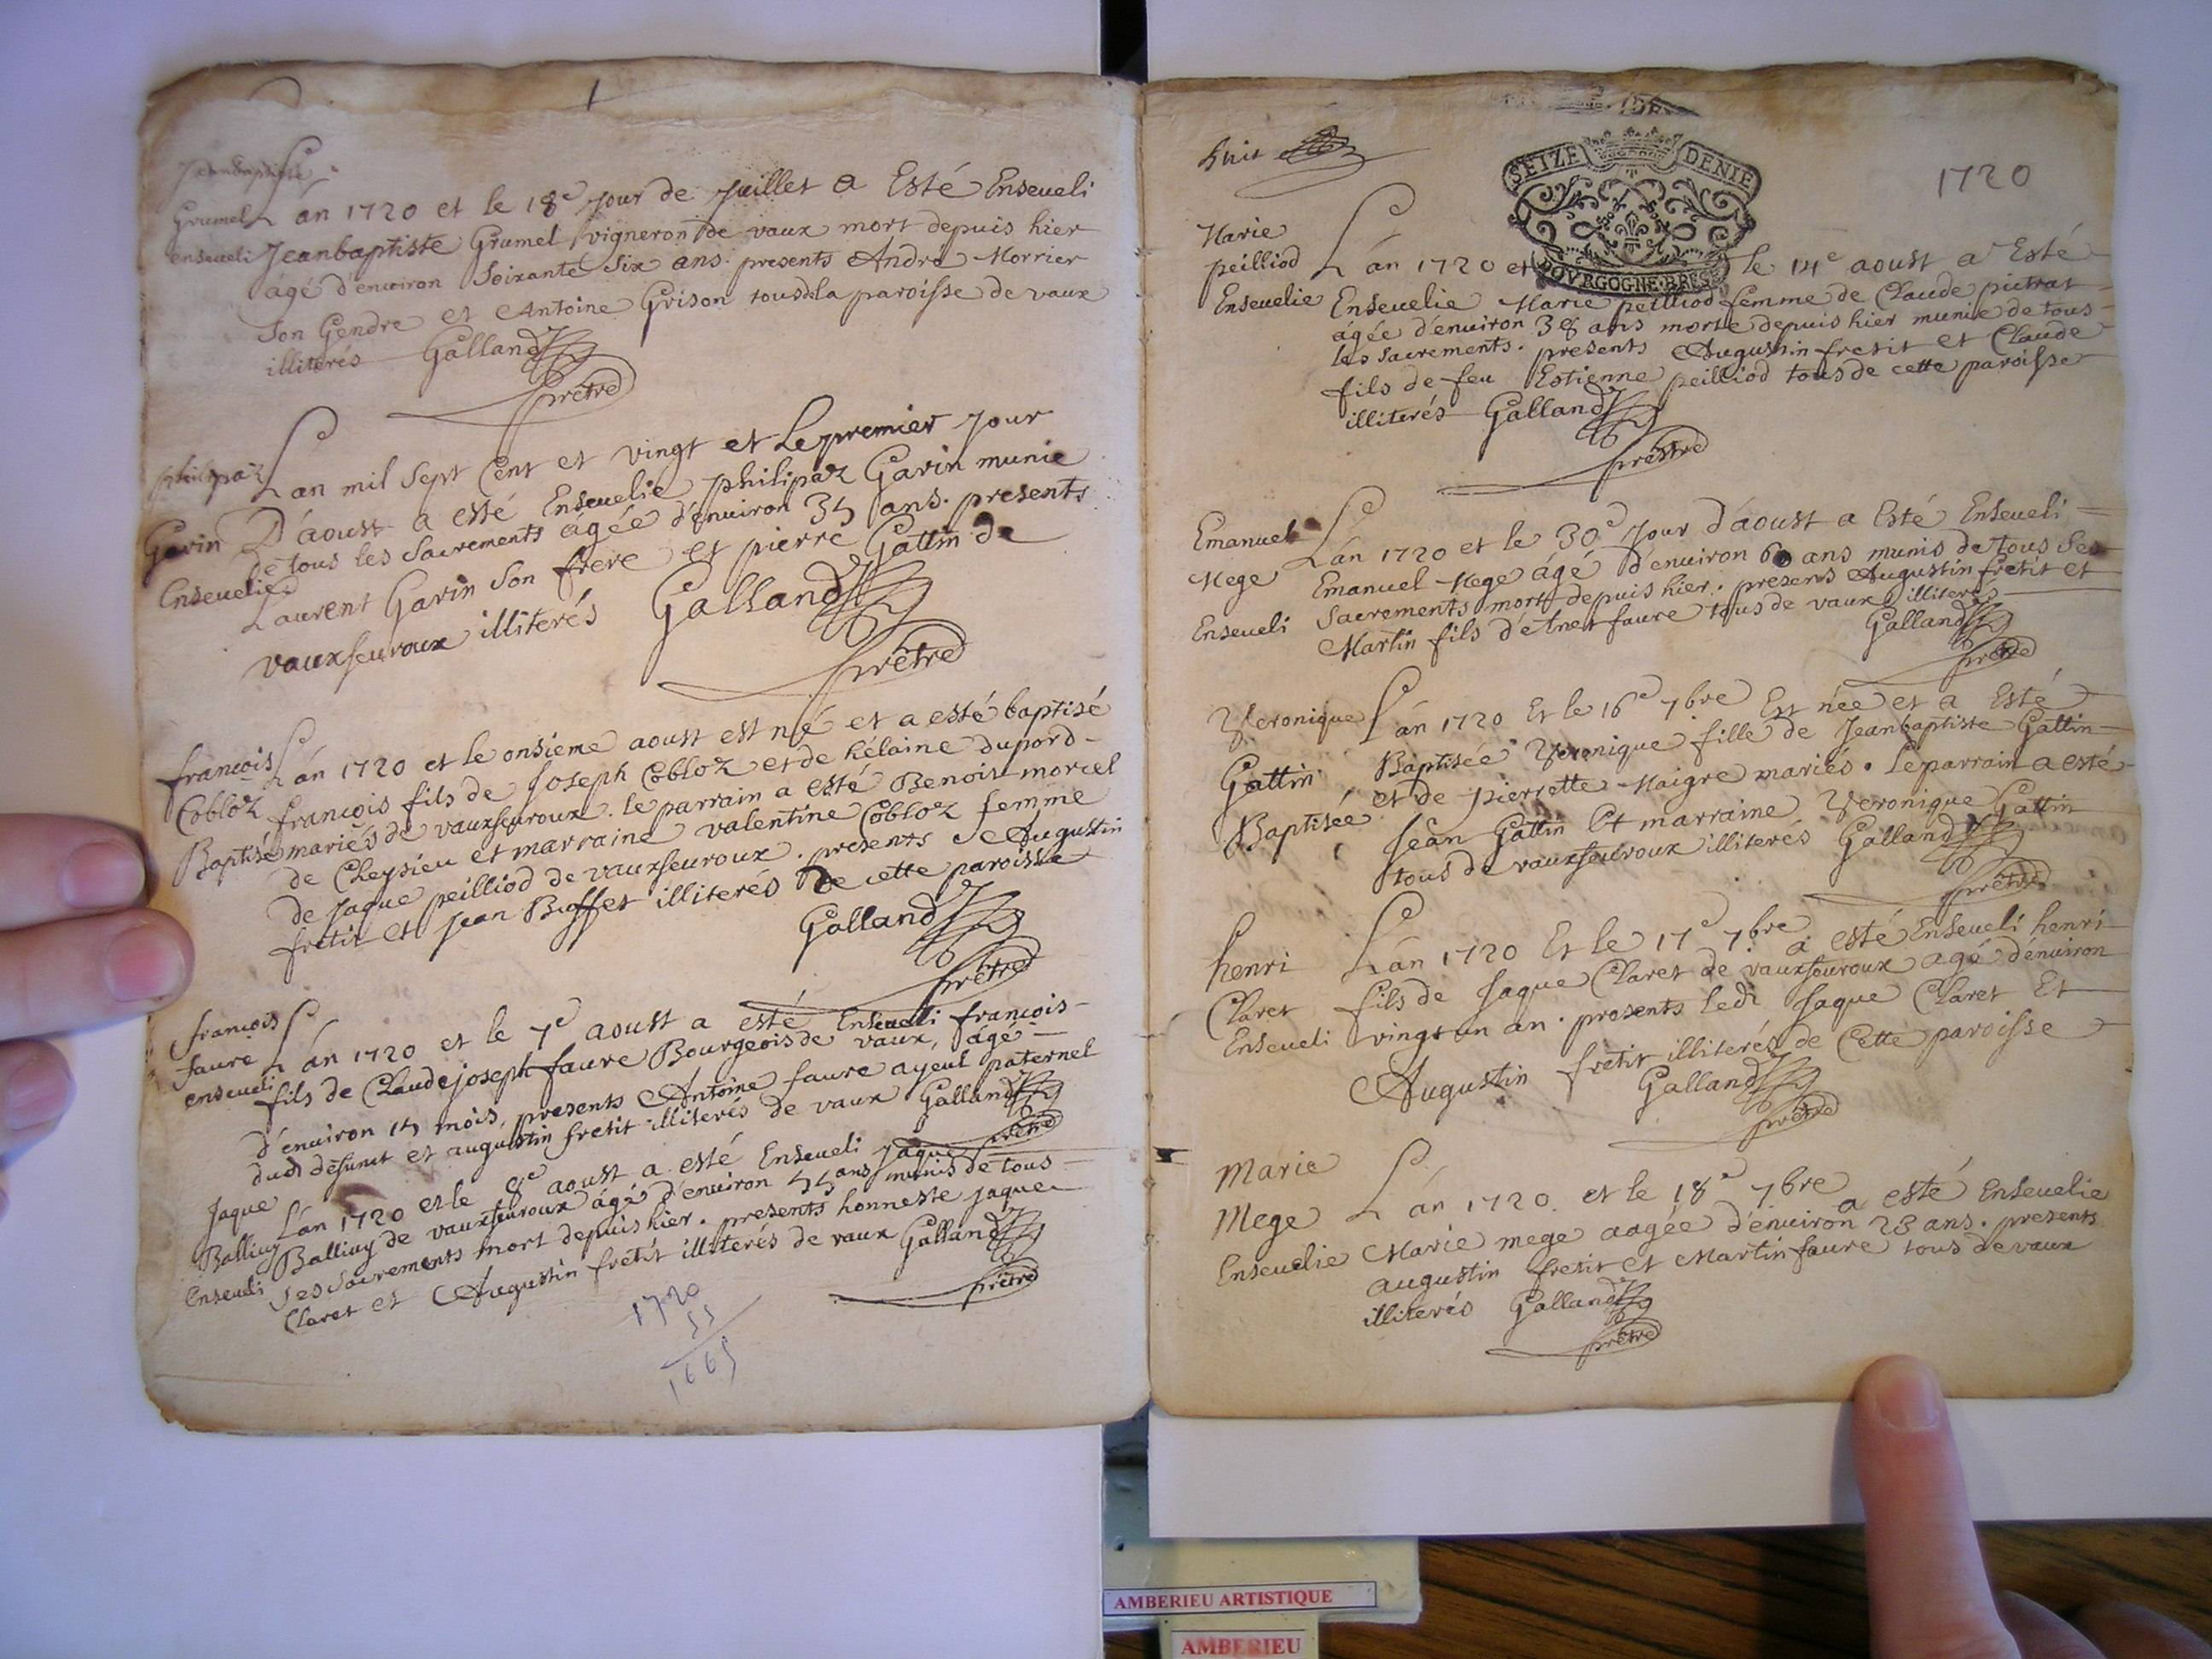 Jeanbaptiste
Grumel
enseveli
L'an 1720 et le 18e jour de juillet a Esté Enseveli
Jeanbaptiste Grumel vigneron de vaux mort depuis hier
âgé d'environ Soixante Six ans. presents André Morrier
son Gendre et Antoine Grison tous de la paroisse de vaux
illiterés Galland
prêtre
philipaz
Gavin
Enseuelie
L'an mil Sept Cent et vingt et Le premier jour
D'aoust a esté Enseuelie philipaz Gavin munie
de tous les Sacrements âgée d'enuiron 35 ans. presents
Laurent Gavin Son frere et pierre Gattin de
vauxfeuroux illiterés Galland
prêtre
francois
Cobloz
Baptisé
L'an 1720 et le onsieme aoust est né et a esté baptisé
francois fils de Joseph Cobloz et de hélaine dupord
mariés de vauxfeuroux. le parrain a esté Benoist morcel
de Cheysieu et marraine valentine Cobloz femme
de Jaque peilliod de vauxfeuroux. presents Augustin
fretit et Jean Buffet illiterés de cette paroisse
Galland
prêtre
francois
faure
enseueli
L'an 1720 et le 7e aoust a esté Enseueli francois
fils de Claudejoseph faure Bourgeois de vaux, âgé
d'enuiron 15 mois, presents Antoine faure ayeul paternel
dudt défunct et augustin fretit illiterés de vaux Galland
prêtre
Jaque
Balliuy
Enseueli
L'an 1720 et le 8e aoust a esté Enseueli Jaque
Balliuy de vauxfeuroux âgé d'enuiron 55 ans munis de tous
ses Sacrements mort depuis hier. presents honneste jaque
Claret et Augustin fretit illiterés de vaux Galland
prêtre
1720
55
1665
huit
SEIZE DENIE
BOVRGOGNE·BRES
1720
Marie
peilliod
Enseuelie
L'an 1720 et le 14e aoust a Esté
Enseuelie Marie peilliod femme de Claude pictrat
âgée d'enuiron 38 ans morte depuis hier munie de tous
les sacrements. presents Augustin fretit et Claude
fils de feu Estienne peilliod tous de cette paroisse
illiterés Galland
prêstre
Emanuel
Mege
Enseueli
L'an 1720 et le 30e Jour d'aoust a Esté Enseueli
Emanuel Mege âgé d'enuiron 60 ans munis de tous Ses
Sacrements mort depuis hier. presens Augustin fretit et
Martin fils d'Ainet faure tous de vaux illiterés
Galland
prêtre
Veronique
Gattin
Baptisée
L'an 1720 Et le 16e 7bre Est née et a Esté
Baptisée Veronique fille de Jeanbaptiste Gattin
et de pierrette Maigre mariés. Le parrain a esté
Jean Gattin Et marraine Veronique Gattin
tous de vauxfeuroux illiterés Galland
prêtre
henri
Claret
Enseueli
L'an 1720 Et le 17e 7bre a esté Enseueli henri
fils de Jaque Claret de vauxfeuroux agé d'enuiron
vingt un an. presents ledt Jaque Claret Et
Augustin fretit illiterés de Cette paroisse
Galland
prêtre
Marie
Mege
Enseuelie
L'an 1720. et le 18e 7bre a esté Enseuelie
Marie mege aagée d'enuiron 23 ans. presents
augustin fretit et Martin faure tous de vaux
illiterés Galland
prêtre
AMBERIEU ARTISTIQUE
AMBERIEU